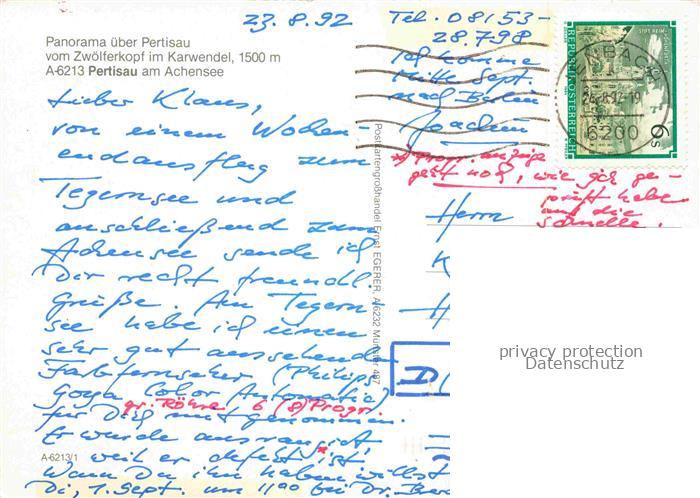 23.8.92
Tel. 08153-
28.798
Panorama über Pertisau
vom Zwölferkopf im Karwendel, 1500 m
A-6213 Pertisau am Achensee
Lieber Klaus,
von einem Wochen-
endausflug zum
Tegernsee und
anschließend zum
Achensee sende ich
Dir recht freundl.
Grüße. Am Tegern
see habe ich einen
sehr gut aussehend
Farbfernseher (Philips
Goya Color Automatic)
gr. Röhre 6 (8) Progr.
für Dich mitgenommen.
Er wurde ausrangiert
weil er defekt ist
Wenn Du ihn haben willst
Di, 1. Sept. um 11⁰⁰ bei Dr.
A-6213/1
Ich komme
Mitte Sept.
nach Berlin
Joachim
*) Progr. anzeige
geht noch, wie ich ge-
prüft habe
auf die
Schnelle.
Postkartengroßhandel Ernst EGERER, A-6232 Münster 487
REPUBLIK ÖSTERREICH
6 S
24.8.92-19
6200
Herrn
K
H
privacy protection
Datenschutz